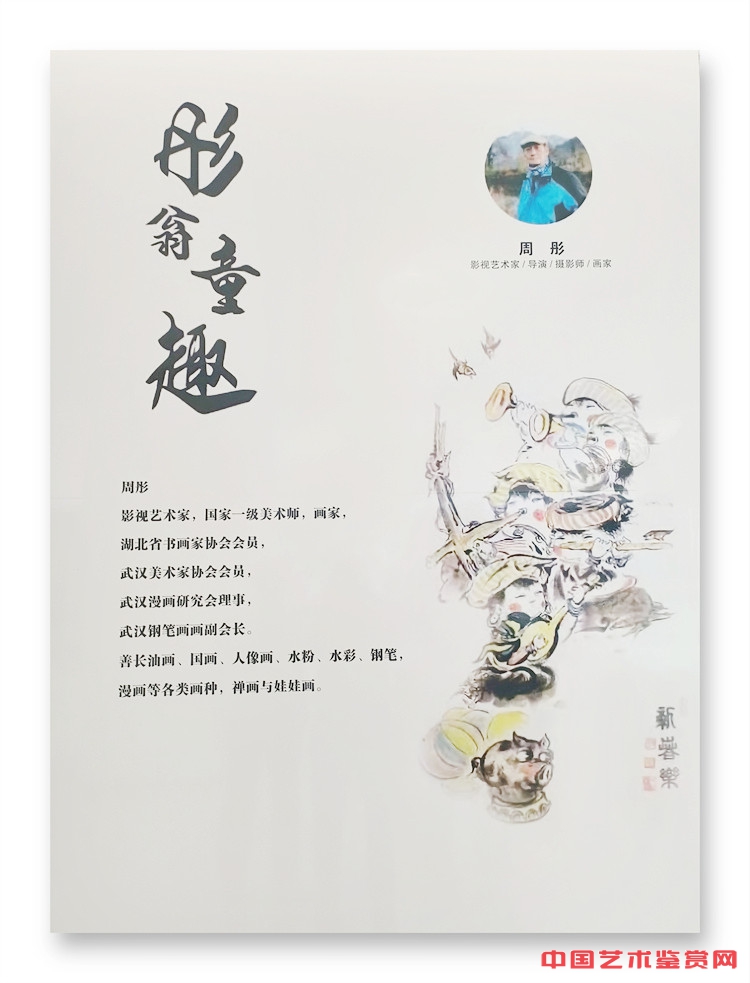 彤
翁
童
趣
周 彤
影视艺术家/导演/摄影师/画家
周彤
影视艺术家，国家一级美术师，画家，
湖北省书画家协会会员，
武汉美术家协会会员，
武汉漫画研究会理事，
武汉钢笔画画副会长。
善长油画、国画、人像画、水粉、水彩、钢笔，
漫画等各类画种，禅画与娃娃画。
中国艺术鉴赏网